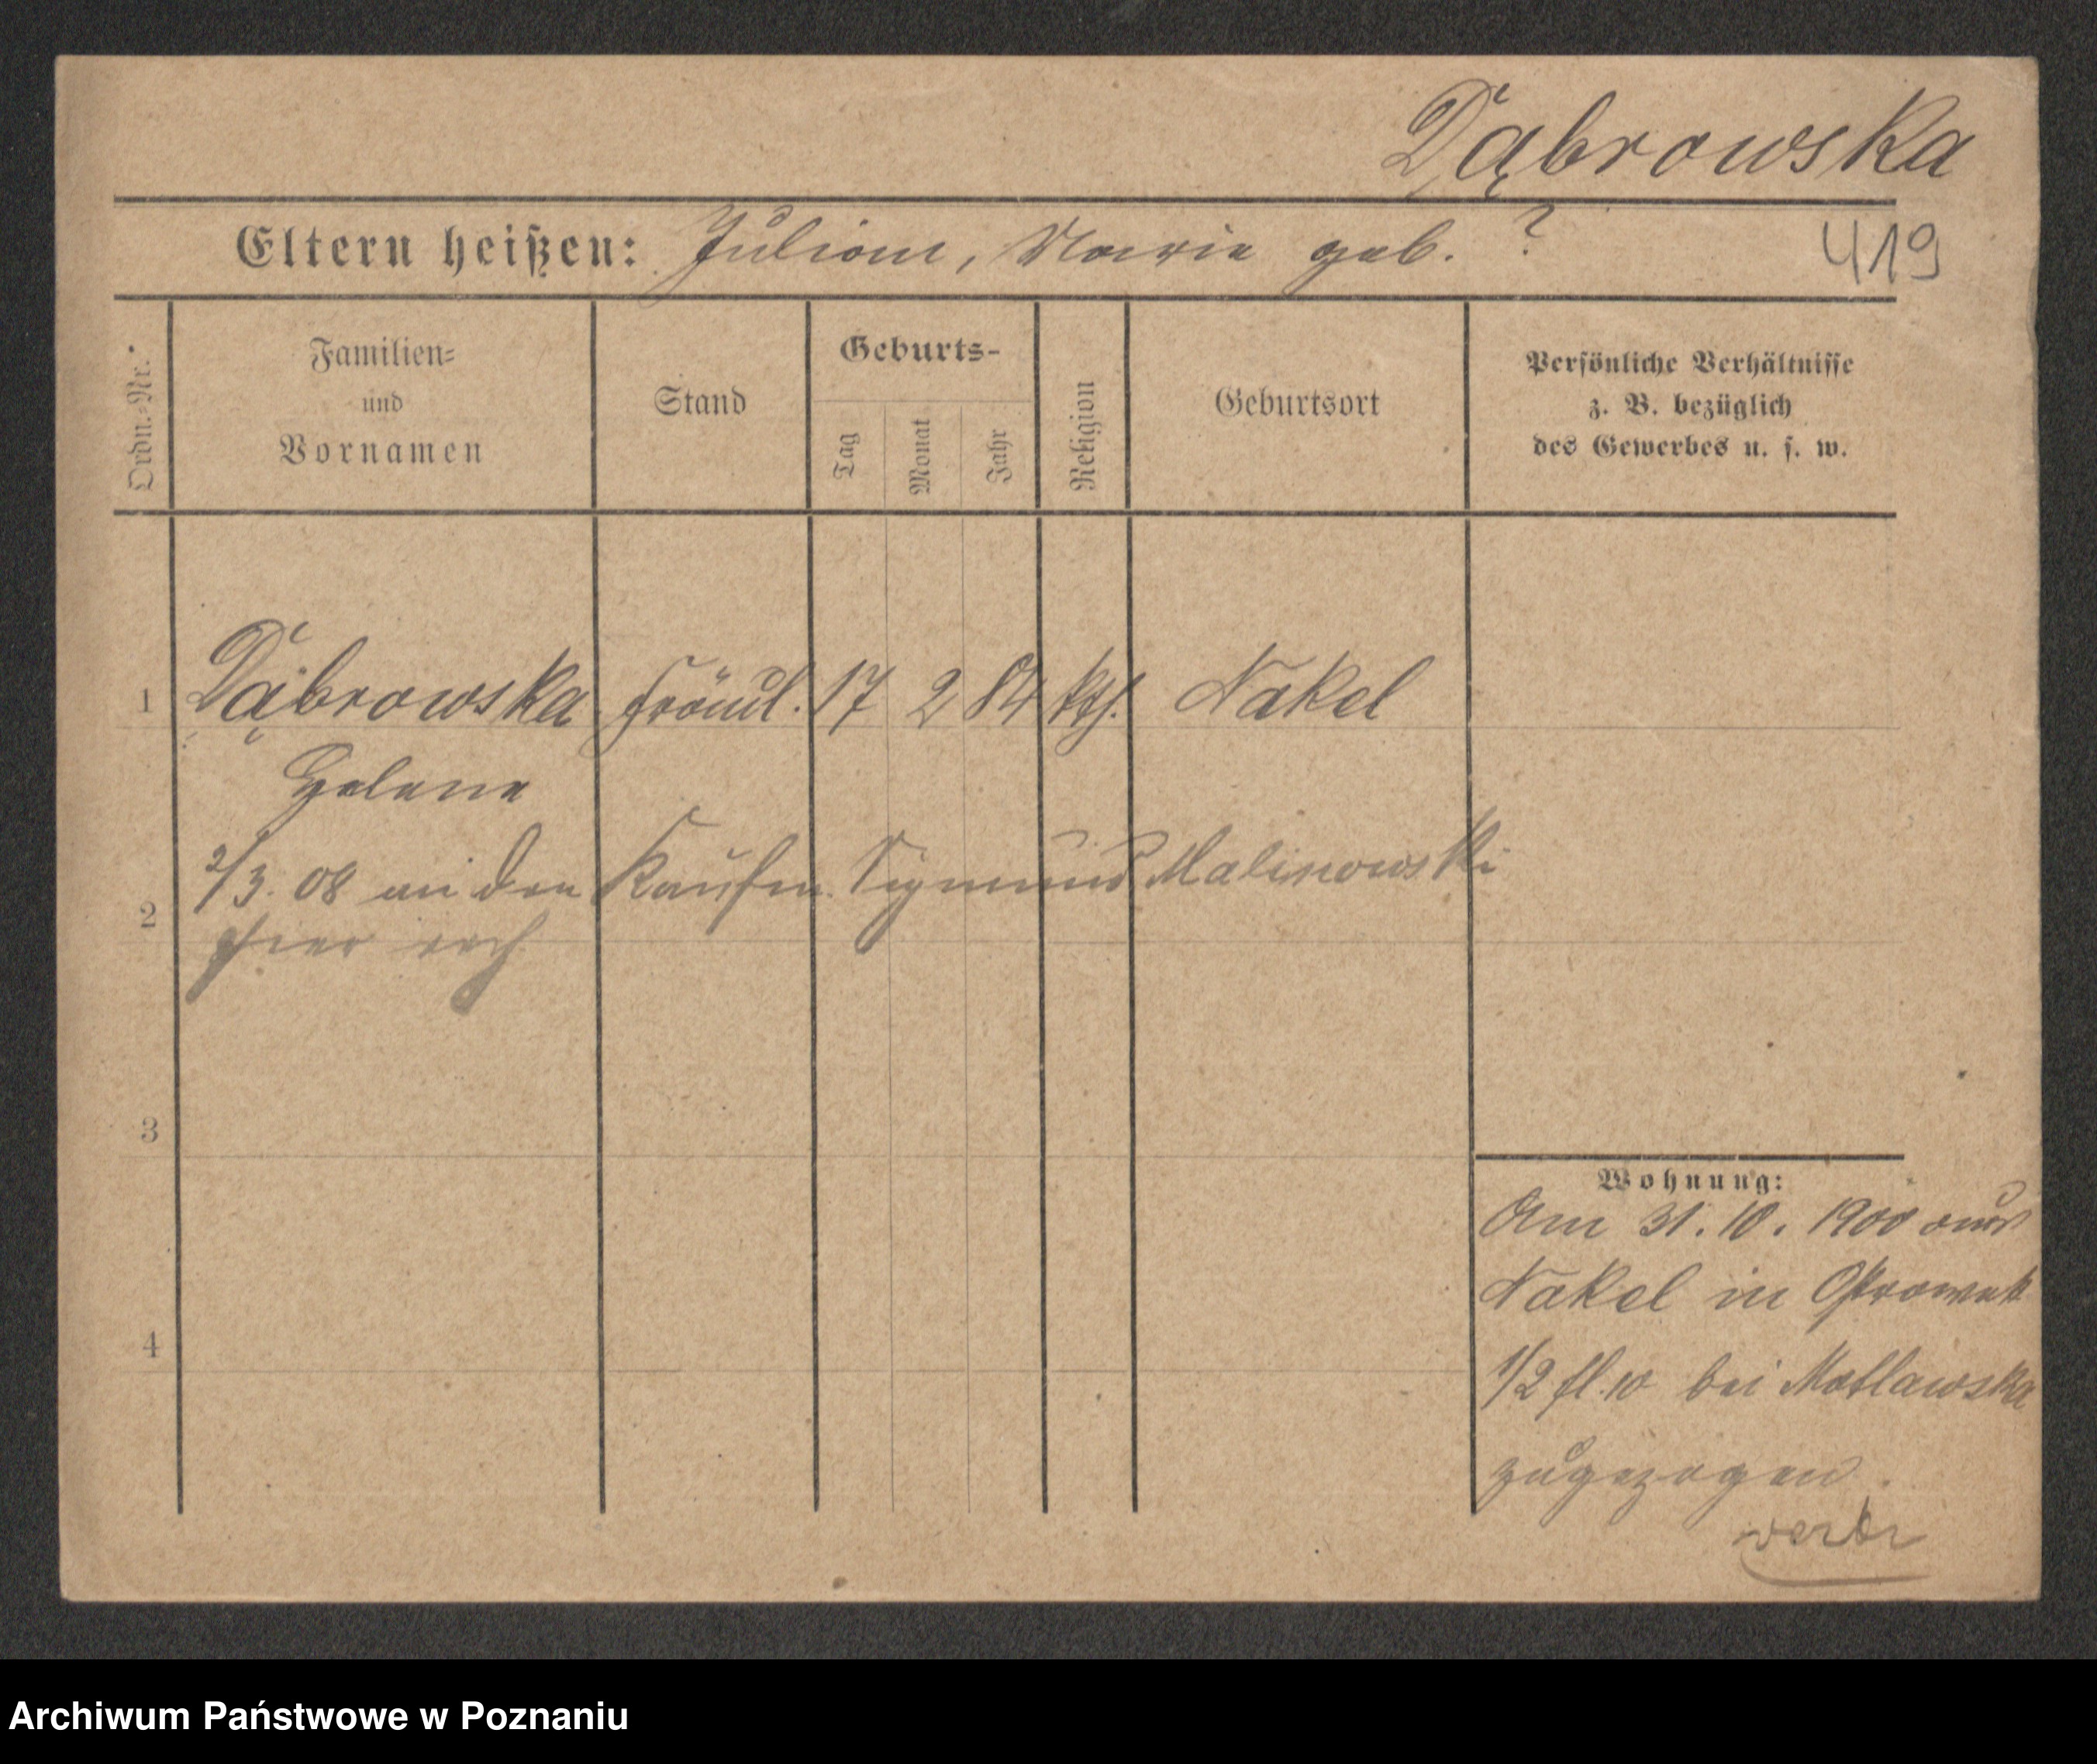 Dąbrowska
Eltern heißen: Julian, Maria geb. ?
419
Ordn.-Nr.
Familien-
und
Vornamen
Stand
Geburts-
Tag
Monat
Jahr
Religion
Geburtsort
Persönliche Verhältnisse
z. B. bezüglich
des Gewerbes u. s. w.
1 Dąbrowska Fräul. 17 2 84 kth. Nakel
Helene
2/3. 08 an den Kaufm. Sigmund Malinowski
2
hier verh
3
4
Wohnung:
Am 31. 10. 1900 aus
Nakel in
1/2 fl. 10 bei Motlawska
zugezogen.
Archiwum Państwowe w Poznaniu